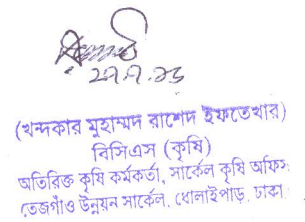 ২৭.৭.১৬
(খন্দকার মুহাম্মদ রাশেদ ইফতেখার)
বিসিএস (কৃষি)
অতিরিক্ত কৃষি কর্মকর্তা, সার্কেল কৃষি অফিস
তেজগাঁও উন্নয়ন সার্কেল, ধোলাইপাড়, ঢাকা